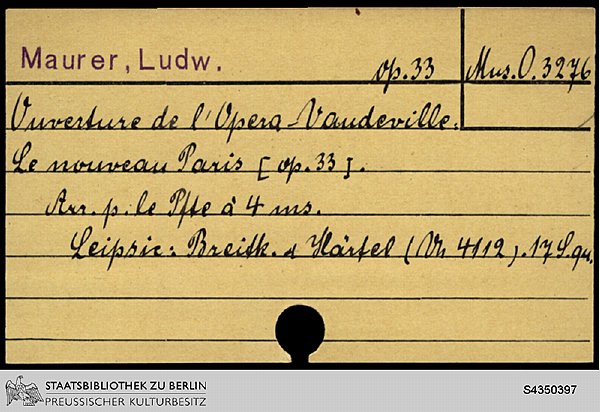 Maurer, Ludw.
op. 33
Mus. O. 3276
Ouverture de l'Opera-Vaudeville:
Le nouveau Paris [op. 33].
Arr. p. le Pfte à 4 ms.
Leipsic: Breitk. & Härtel (Vn 4112). 17 S. qu.
STAATSBIBLIOTHEK ZU BERLIN
PREUSSISCHER KULTURBESITZ
S4350397